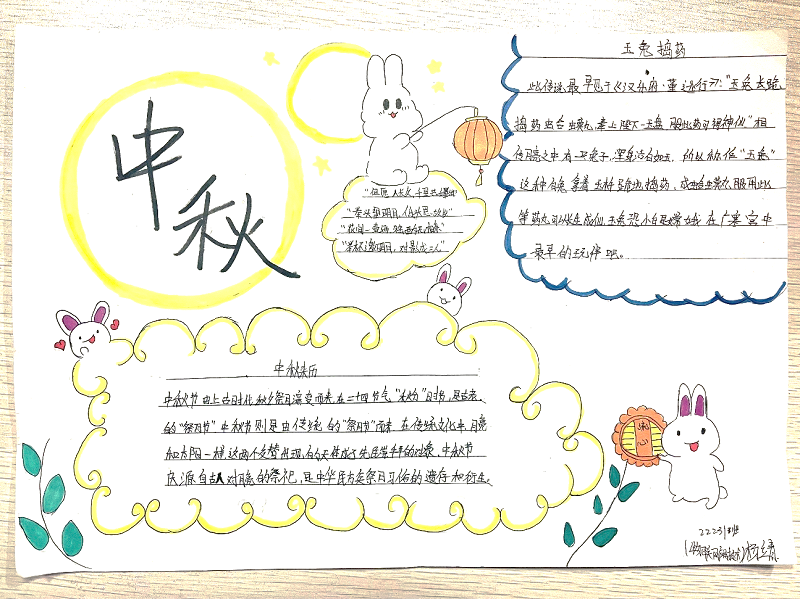 中秋
玉兔捣药
此传说最早见于《汉乐府·董逃行》："玉兔长跪
捣药虾蟆丸,奉上陛下一玉盘,服此药可得神仙"相
传月亮之中有一只兔子,浑身洁白如玉,所以称作"玉兔"
这种白兔拿着玉杵跪地捣药,成蛤蟆丸,服用此
等药丸可以长生成仙,玉兔恐怕是嫦娥在广寒宫中
最早的玩伴吧。
"但愿人长久,千里共婵娟"
"举杯邀明月,对影成三人"
中秋来历
中秋节由上古时代秋夕祭月演变而来,在二十四节气"秋分"
的"祭月节"中秋节则是由传统的"祭月节"而来,在传统文化中,月亮
和太阳一样这两个交替出现
庆源自古人对月亮的祭祀,是中华民族祭月习俗的遗存和衍生。
22231班